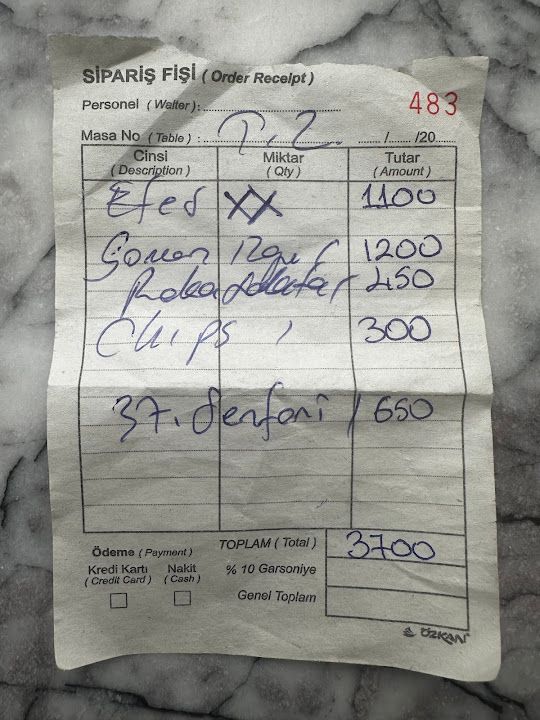 SİPARİŞ FİŞİ ( Order Receipt )
Personel ( Waiter ) :
483
Masa No ( Table ) : T.2. / /20
Cinsi Miktar Tutar
( Description ) ( Qty ) ( Amount )
Efes XX 1100
1200
Roka 450
Chips 1 300
37. Senfoni 1 650
TOPLAM ( Total ) 3700
Ödeme ( Payment )
Kredi Kartı Nakit % 10 Garsoniye
( Credit Card ) ( Cash )
Genel Toplam
ÖZKAN